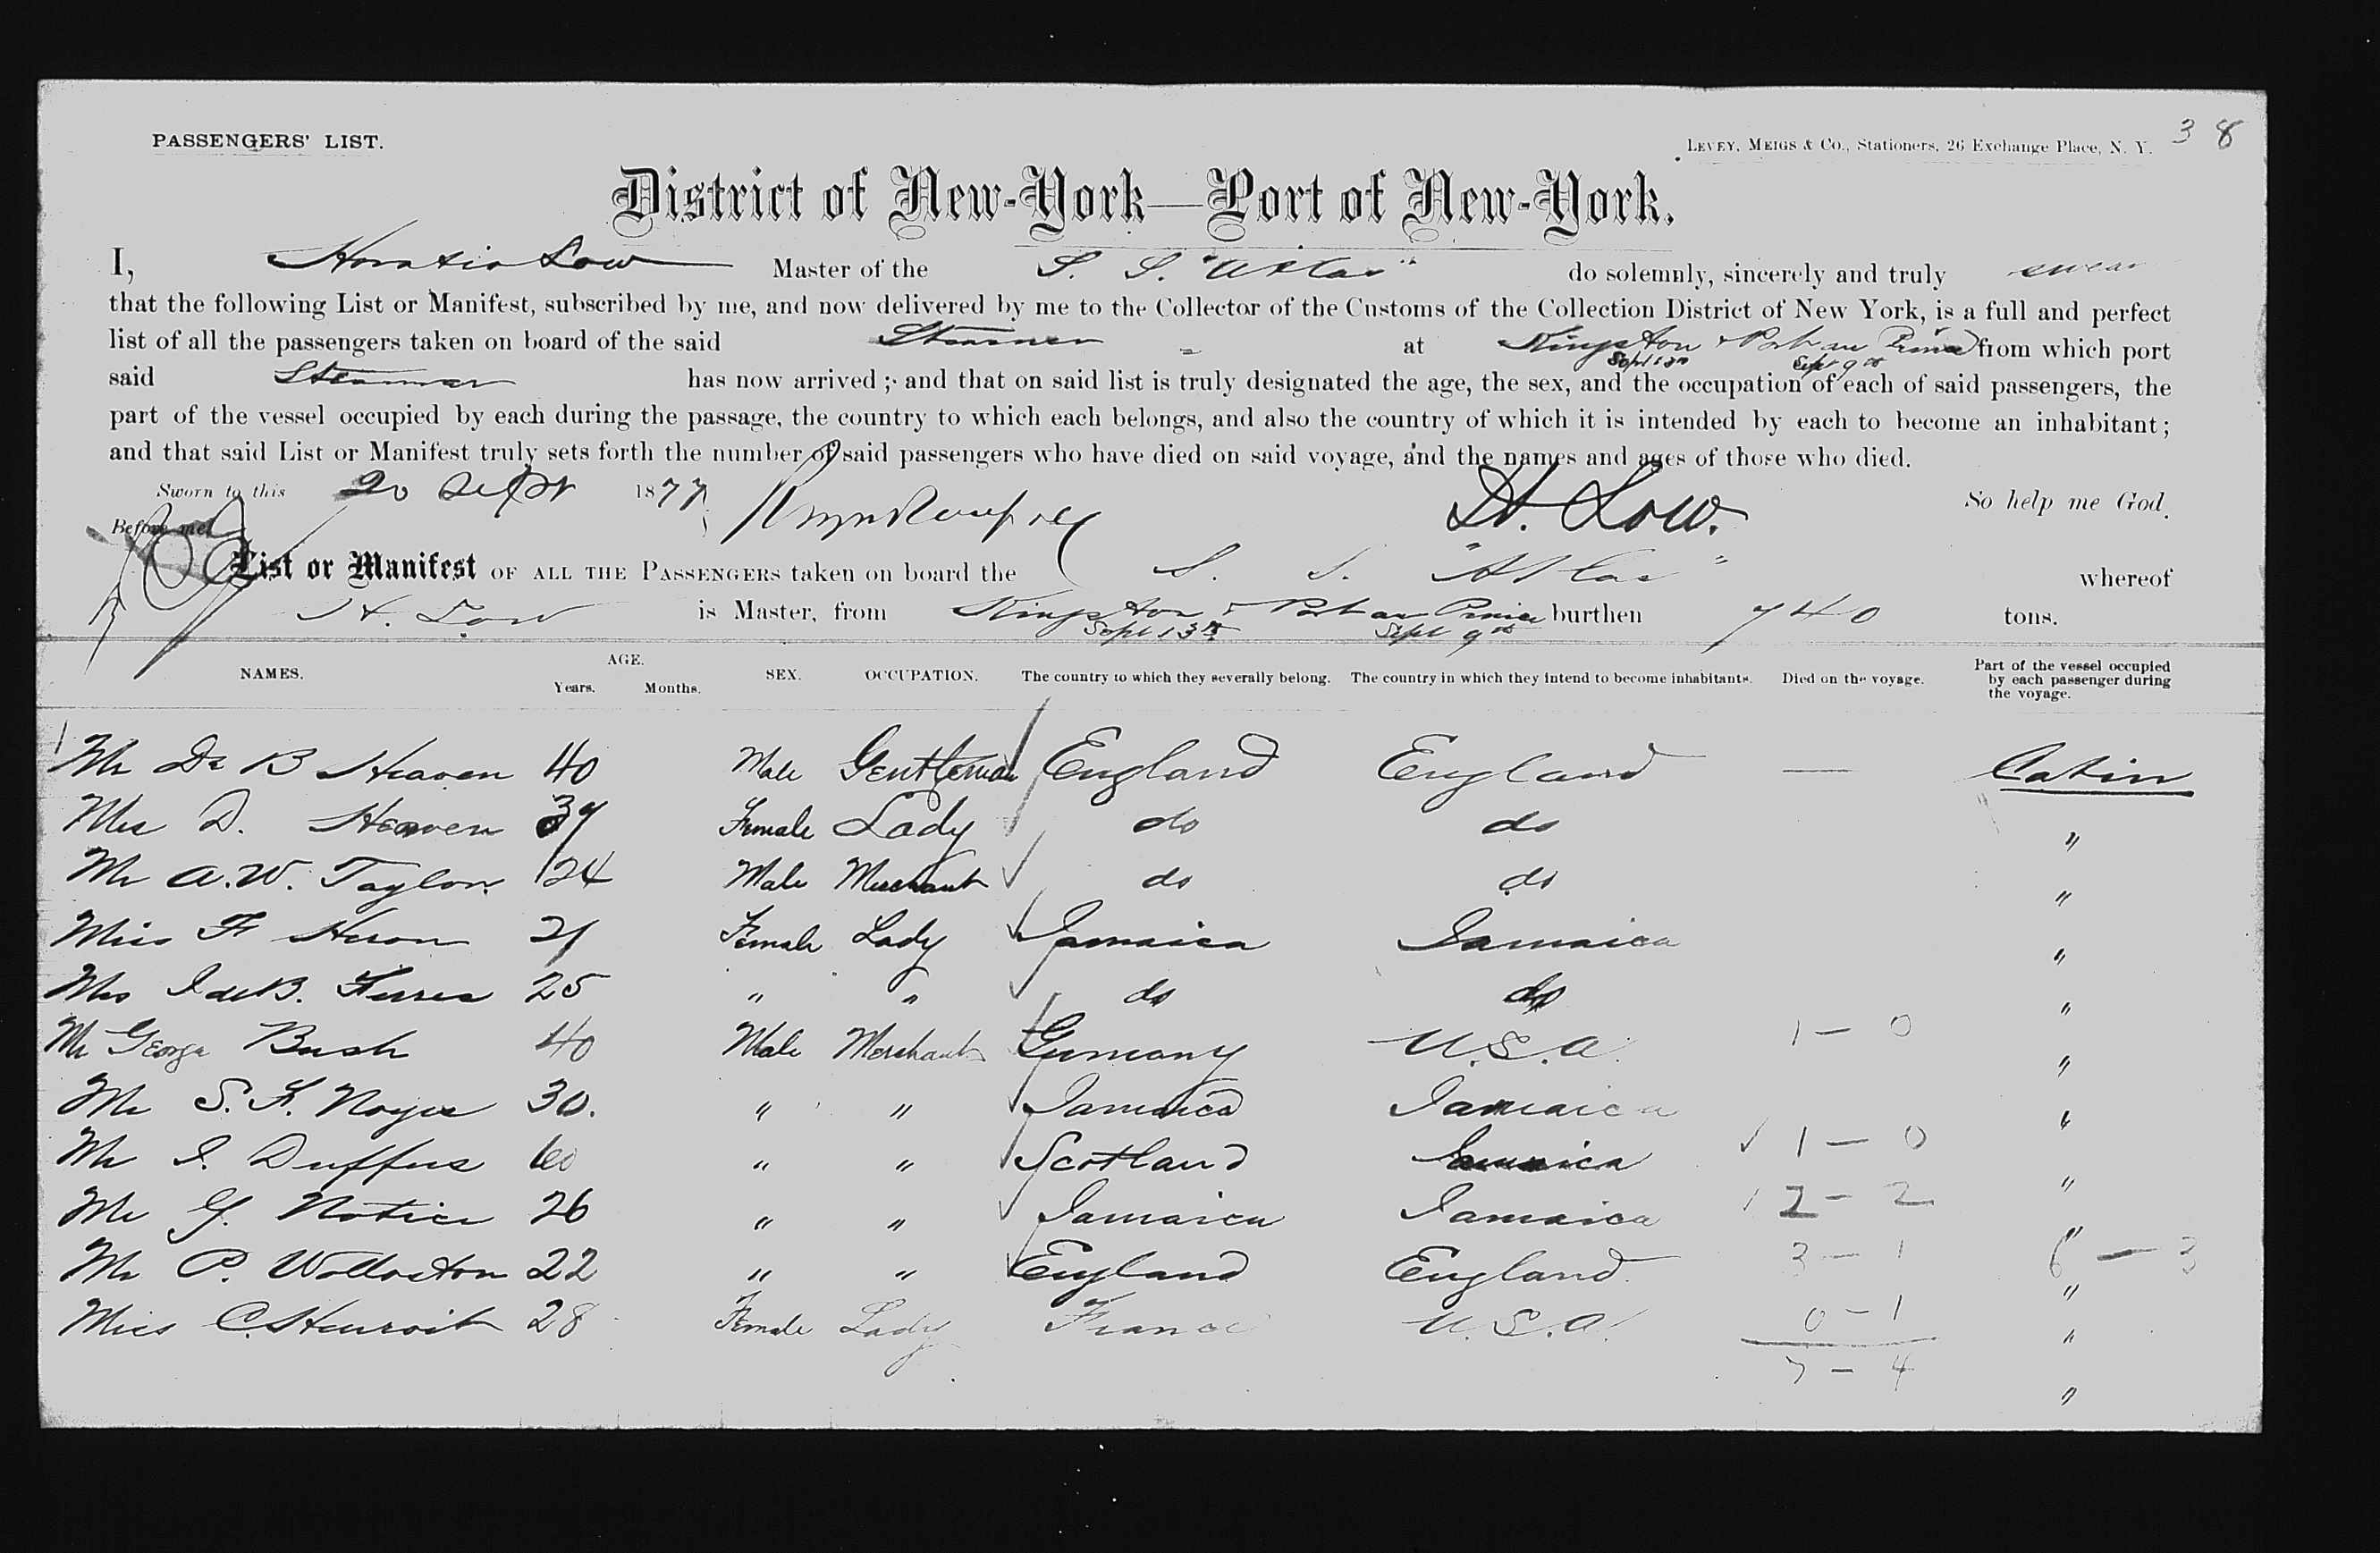 PASSENGERS' LIST.
LEVEY, MEIGS & CO., Stationers, 26 Exchange Place, N. Y. 38
District of New-York—Port of New-York.
I, Horatio Low Master of the S. S. "Atlas" do solemnly, sincerely and truly swear
that the following List or Manifest, subscribed by me, and now delivered by me to the Collector of the Customs of the Collection District of New York, is a full and perfect
list of all the passengers taken on board of the said Steamer at Kingston & Port au Prince from which port
Sept 13th Sept 9th
said Steamer has now arrived; and that on said list is truly designated the age, the sex, and the occupation of each of said passengers, the
part of the vessel occupied by each during the passage, the country to which each belongs, and also the country of which it is intended by each to become an inhabitant;
and that said List or Manifest truly sets forth the number of said passengers who have died on said voyage, and the names and ages of those who died.
Sworn to this 20 Sept 1877 H. Low. So help me God.
Before me
List or Manifest OF ALL THE PASSENGERS taken on board the S. S. "Atlas" whereof
H. Low is Master, from Kingston & Port au Prince burthen 740 tons.
Sept 13th Sept 9th
NAMES. AGE. Years. Months. SEX. OCCUPATION. The country to which they severally belong. The country in which they intend to become inhabitants. Died on the voyage. Part of the vessel occupied by each passenger during the voyage.
Mr De B Heaven 40 Male Gentleman England England — Cabin
Mrs D. Heaven 39 Female Lady do do "
Mr A.W. Taylor 24 Male Merchant do do "
Miss F Heron 21 Female Lady Jamaica Jamaica "
Mrs I deB. 25 " " do do "
Mr George Bush 40 Male Merchant Germany U.S.A. 1 — 0 "
Mr S. F. Noyes 30. " " Jamaica Jamaica "
Mr I. Duffus 60 " " Scotland Jamaica 1 — 0 "
Mr G. Notice 26 " " Jamaica Jamaica 2 — 2 "
Mr P. Wollaston 22 " " England England 3 — 1 6 — 3 "
Miss C. 28 Female Lady France U.S.A. 0 — 1 "
7 — 4 "